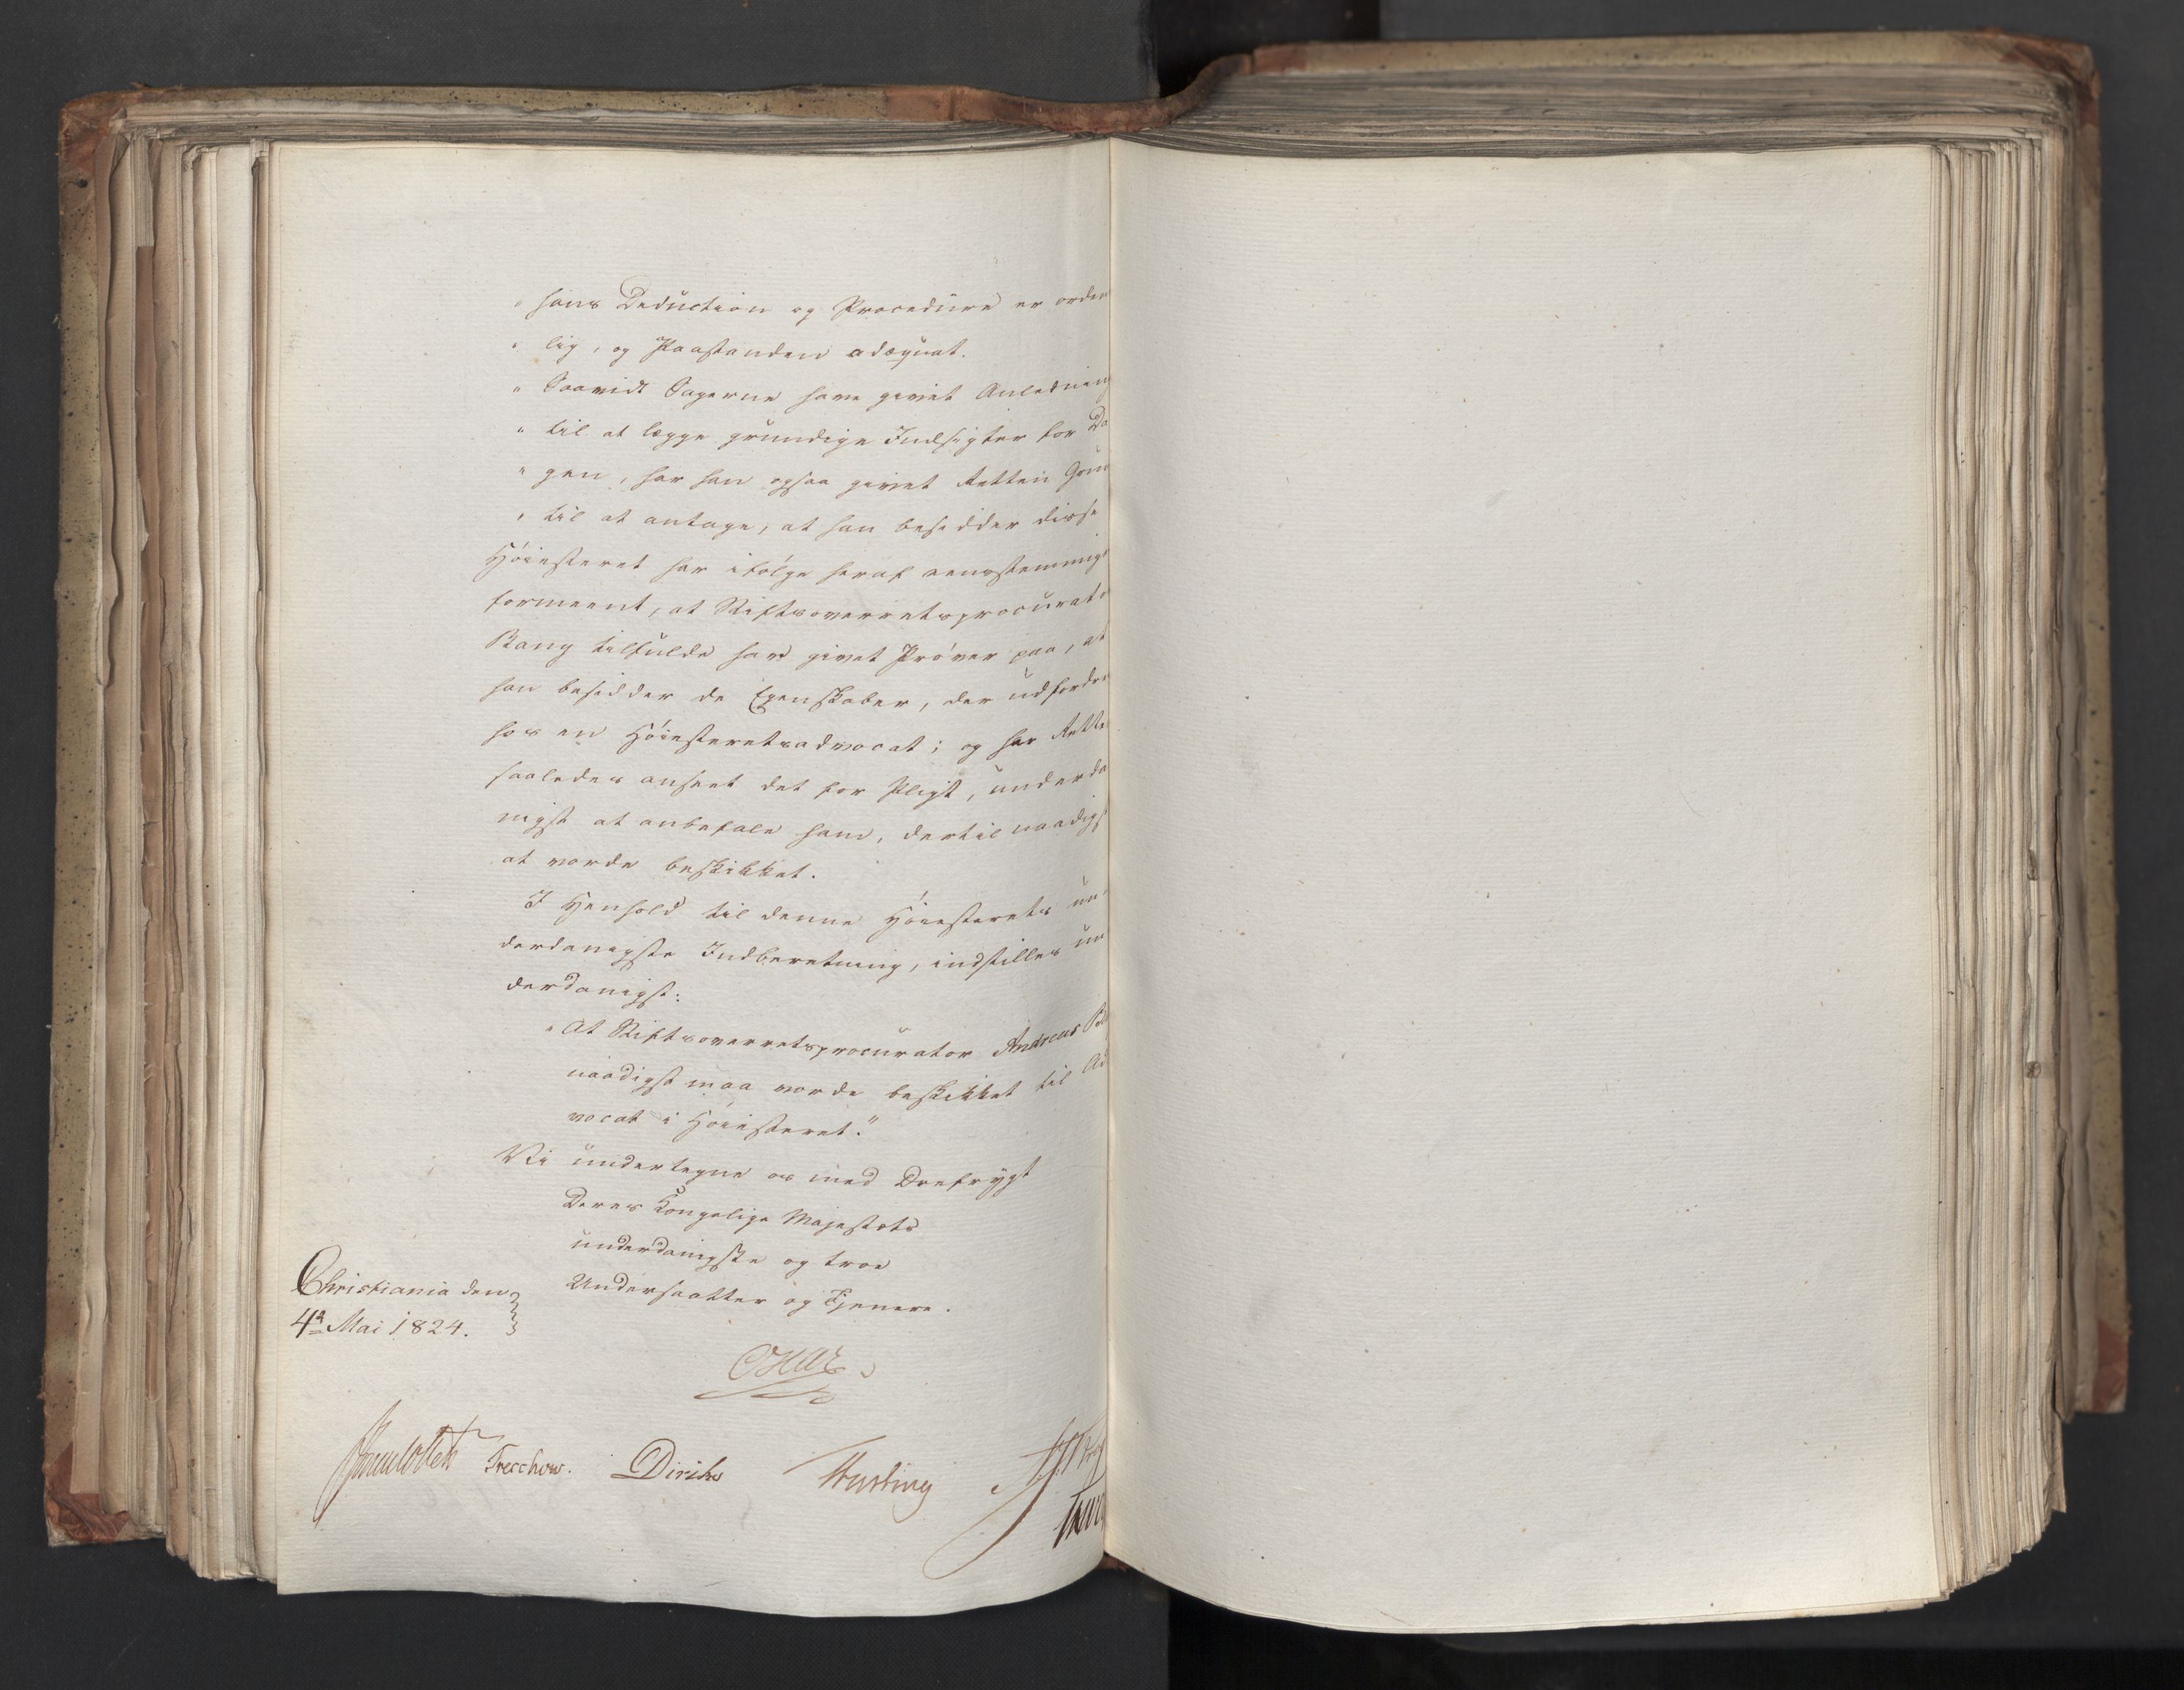 " hans Deduction og Procedüre er orden
" lig, og Paastanden adæqvat.
" Saavidt Sagerne have givet Anledning
" til at lægge grundige Indsigter for Da
" gen, har han ogsaa givet Retten Grun
" til at antage, at han besidder disse
Höiesteret har ifölge heraf eensstemmig
formeent, at Stiftsoverretsprocurato
Bang tilfulde har givet Pröver paa, at
han besidder de Egenskaber, der udfordre
hos en Höiesteretsadvocat; og har Rette
saaledes anseet det for Pligt, underda
nigst at anbefale ham, dertil naadigs
at vorde beskikket.
I Henhold til denne Höiesterets un-
derdanigste Indberetning, indstilles un
derdanigst:
"At Stiftsoverretsprocurator Andreas B
naadigst maa vorde beskikket til Ad
vocat i Höiesteret."
Vi undertegne os med Ærefrygt
Deres Kongelige Majestæts
underdanigste og troe
Undersaatter og Tjenere.
Christiania den
4de Mai 1824.
Treschow. Diriks